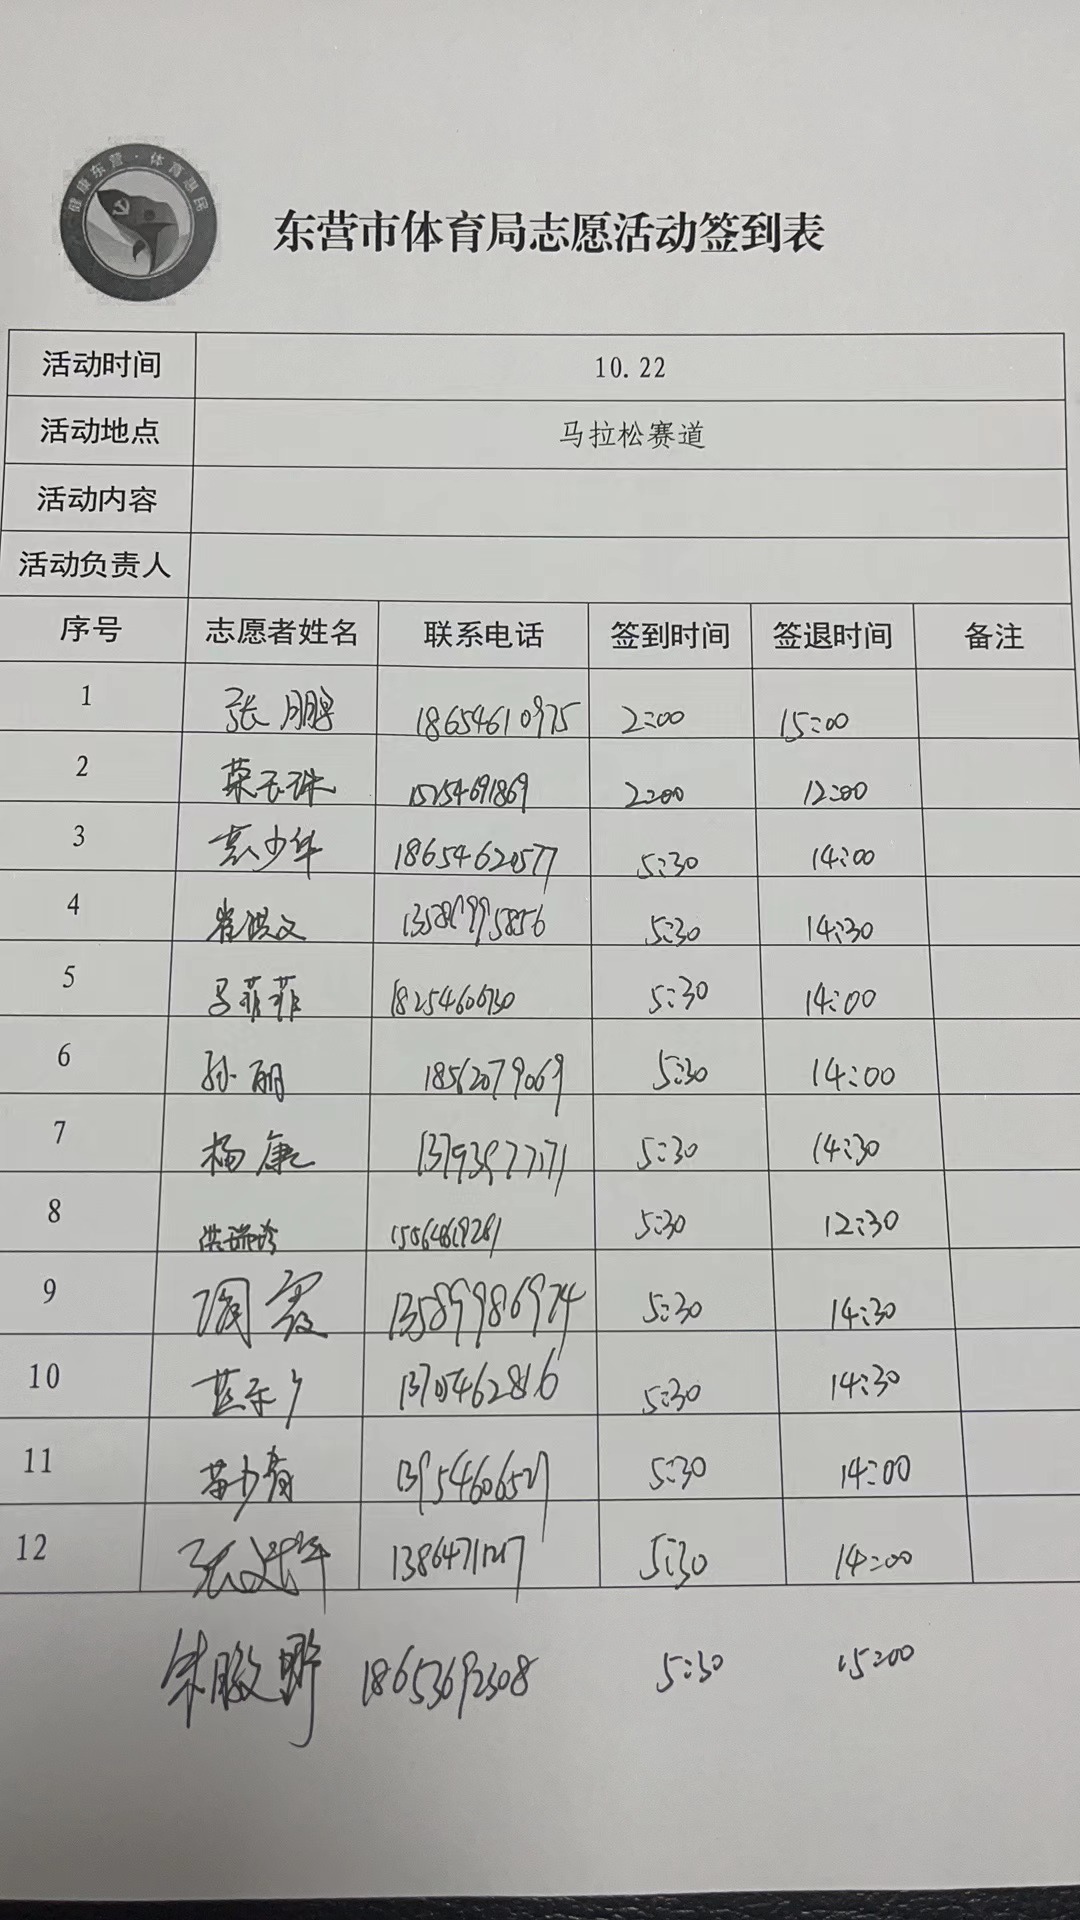 健康东营·体育惠民
东营市体育局志愿活动签到表
活动时间 10.22
活动地点 马拉松赛道
活动内容
活动负责人
序号 志愿者姓名 联系电话 签到时间 签退时间 备注
1 张鹏 18654610975 2:00 15:00
2 荣玉珠 15254691869 2:00 12:00
3 袁少华 18654620577 5:30 14:00
4 崔洪文 5:30 14:30
5 马菲菲 18254606130 5:30 14:00
6 孙丽 18562079069 5:30 14:00
7 杨康 5:30 14:30
8 洪瑞玲 5:30 12:30
9 周霞 13589986974 5:30 14:30
10 13705462816 5:30 14:30
11 苗少青 13954606529 5:30 14:00
12 5:30 14:00
18653692308 5:30 15:00